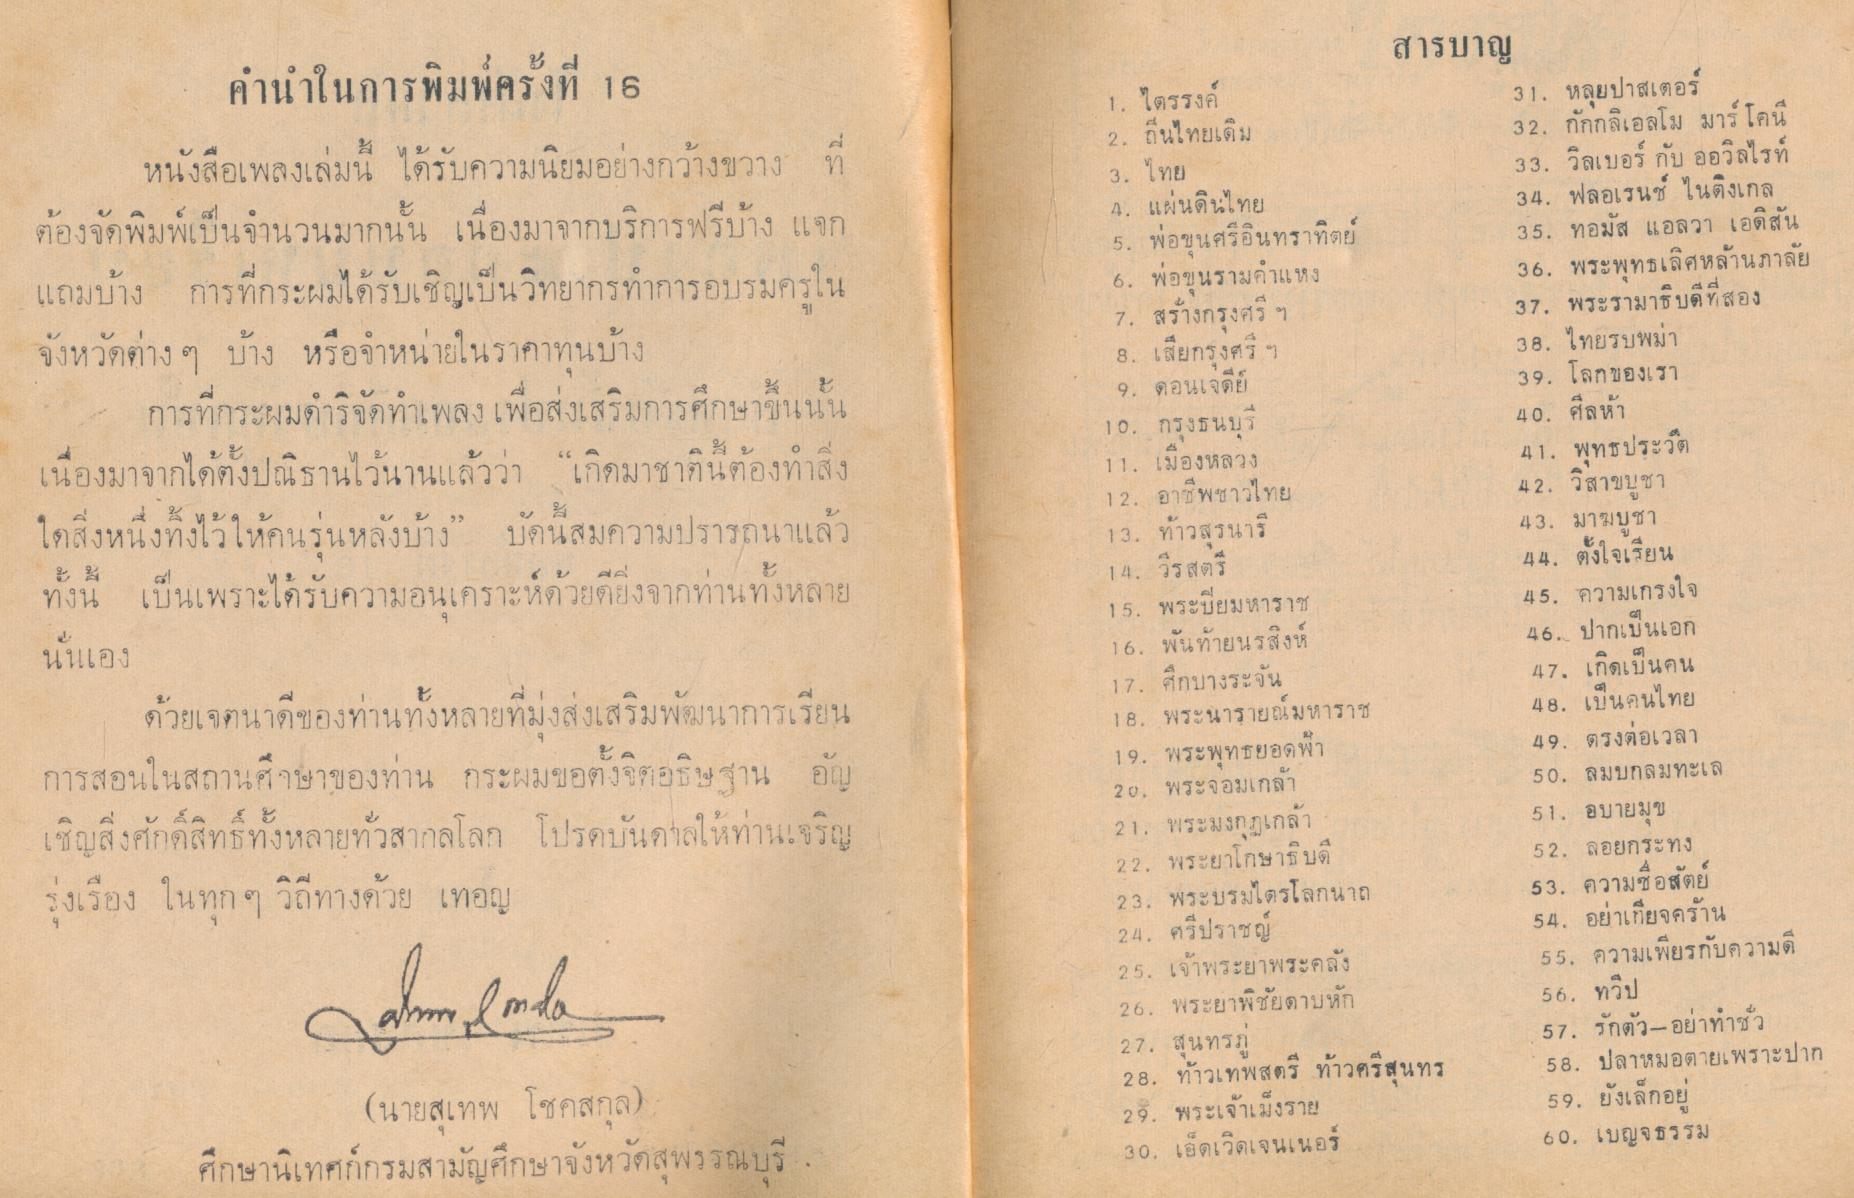 คำนำในการพิมพ์ครั้งที่ 16
หนังสือเพลงเล่มนี้ ได้รับความนิยมอย่างกว้างขวาง ที่
ต้องจัดพิมพ์เป็นจำนวนมากนั้น เนื่องมาจากบริการฟรีบ้าง แจก
แถมบ้าง การที่กระผมได้รับเชิญเป็นวิทยากรทำการอบรมครูใน
จังหวัดต่าง ๆ บ้าง หรือจำหน่ายในราคาทุนบ้าง
การที่กระผมดำริจัดทำเพลง เพื่อส่งเสริมการศึกษาขึ้นนั้น
เนื่องมาจากได้ตั้งปณิธานไว้นานแล้วว่า “เกิดมาชาตินี้ต้องทำสิ่ง
ใดสิ่งหนึ่งทิ้งไว้ให้คนรุ่นหลังบ้าง” บัดนี้สมความปรารถนาแล้ว
ทั้งนี้ เป็นเพราะได้รับความอนุเคราะห์ด้วยดียิ่งจากท่านทั้งหลาย
นั่นเอง
ด้วยเจตนาดีของท่านทั้งหลายที่มุ่งส่งเสริมพัฒนาการเรียน
การสอนในสถานศึาษาของท่าน กระผมขอตั้งจิตอธิษฐาน อัญ
เชิญสิ่งศักดิ์สิทธิ์ทั้งหลายทั่วสากลโลก โปรดบันดาลให้ท่านเจริญ
รุ่งเรือง ในทุก ๆ วิถีทางด้วย เทอญ
(นายสุเทพ โชคสกุล)
ศึกษานิเทศก์กรมสามัญศึกษาจังหวัดสุพรรณบุรี
สารบาญ
1. ไตรรงค์
2. ถิ่นไทยเดิม
3. ไทย
4. แผ่นดินไทย
5. พ่อขุนศรีอินทราทิตย์
6. พ่อขุนรามคำแหง
7. สร้างกรุงศรี ฯ
8. เสียกรุงศรี ฯ
9. ดอนเจดีย์
10. กรุงธนบุรี
11. เมืองหลวง
12. อาชีพชาวไทย
13. ท้าวสุรนารี
14. วีรสตรี
15. พระปิยมหาราช
16. พันท้ายนรสิงห์
17. ศึกบางระจัน
18. พระนารายณ์มหาราช
19. พระพุทธยอดฟ้า
20. พระจอมเกล้า
21. พระมงกุฎเกล้า
22. พระยาโกษาธิบดี
23. พระบรมไตรโลกนาถ
24. ศรีปราชญ์
25. เจ้าพระยาพระคลัง
26. พระยาพิชัยดาบหัก
27. สุนทรภู่
28. ท้าวเทพสตรี ท้าวศรีสุนทร
29. พระเจ้าเม็งราย
30. เอ็ดเวิดเจนเนอร์
31. หลุยปาสเตอร์
32. กักกลิเอลโม มาร์โคนี
33. วิลเบอร์ กับ ออวิลไรท์
34. ฟลอเรนซ์ ไนติงเกล
35. ทอมัส แอลวา เอดิสัน
36. พระพุทธเลิศหล้านภาลัย
37. พระรามาธิบดีที่สอง
38. ไทยรบพม่า
39. โลกของเรา
40. ศีลห้า
41. พุทธประวัติ
42. วิสาขบูชา
43. มาฆบูชา
44. ตั้งใจเรียน
45. ความเกรงใจ
46. ปากเป็นเอก
47. เกิดเป็นคน
48. เป็นคนไทย
49. ตรงต่อเวลา
50. ลมบกลมทะเล
51. อบายมุข
52. ลอยกระทง
53. ความซื่อสัตย์
54. อย่าเกียจคร้าน
55. ความเพียรกับความดี
56. ทวีป
57. รักตัว—อย่าทำชั่ว
58. ปลาหมอตายเพราะปาก
59. ยังเล็กอยู่
60. เบญจธรรม